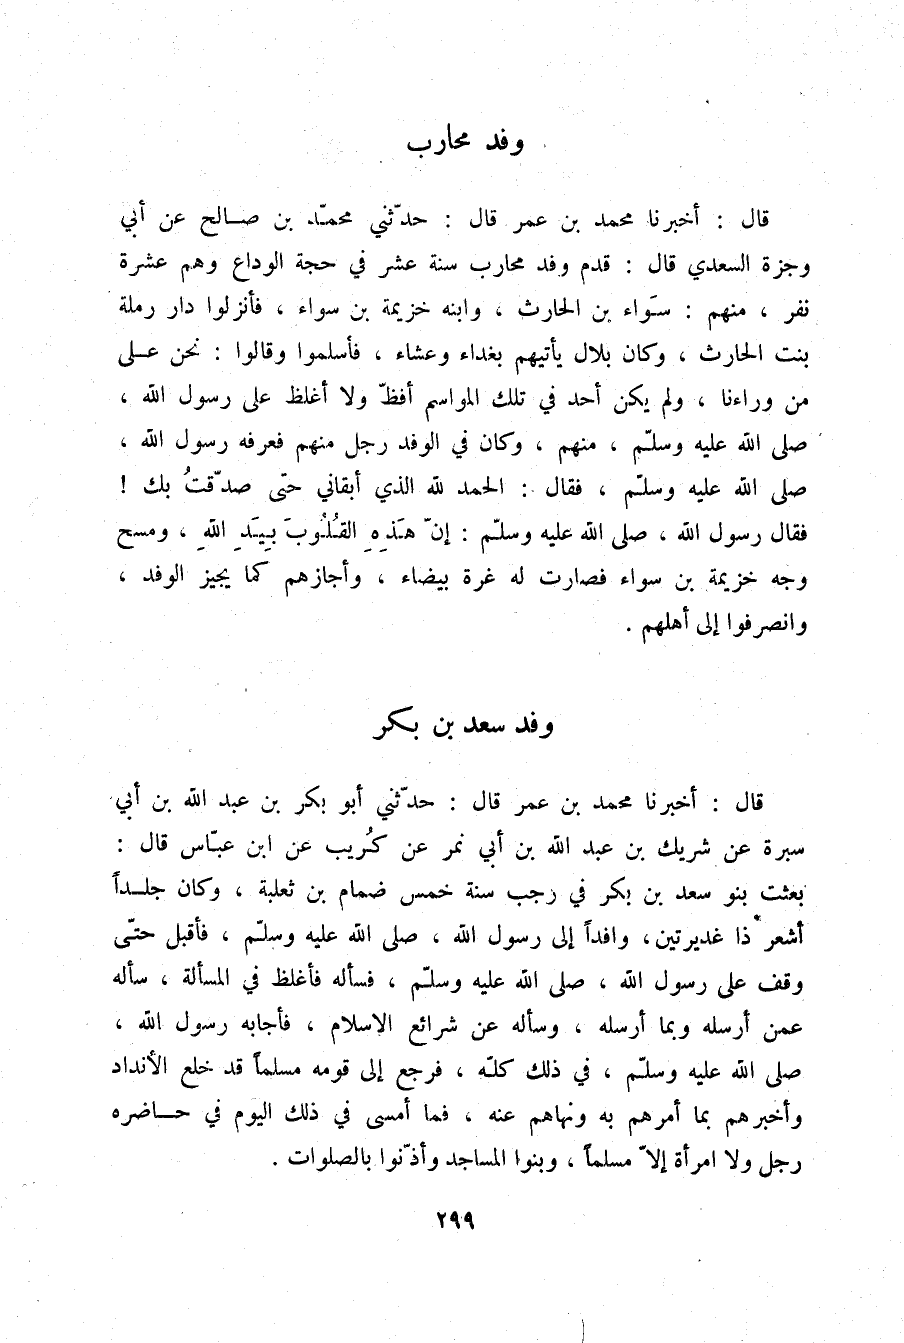 وفد محارب
قال : أخبرنا محمد بن عمر قال : حدّثني محمّد بن صالح عن أبي
وجزة السعدي قال : قدم وفد محارب سنة عشر في حجة الوداع وهم عشرة
نفر ، منهم : سَواء بن الحارث ، وابنه خزيمة بن سواء ، فأنزلوا دار رملة
بنت الحارث ، وكان بلال يأتيهم بغداء وعشاء ، فأسلموا وقالوا : نحن على
من وراءنا ، ولم يكن أحد في تلك المواسم أفظّ ولا أغلظ على رسول الله ،
صلى الله عليه وسلّم ، منهم ، وكان في الوفد رجل منهم فعرفه رسول الله ،
صلى الله عليه وسلّم ، فقال : الحمد لله الذي أبقاني حتّى صدّقتُ بك !
فقال رسول الله ، صلى الله عليه وسلّم : إنّ هَذِهِ القُلُوبَ بِيَدِ اللهِ ، ومسح
وجه خزيمة بن سواء فصارت له غرة بيضاء ، وأجازهم كما يجيز الوفد ،
وانصرفوا إلى أهلهم .
وفد سعد بن بكر
قال : أخبرنا محمد بن عمر قال : حدّثني أبو بكر بن عبد الله بن أبي
سبرة عن شريك بن عبد الله بن أبي نمر عن كُريب عن ابن عبّاس قال :
بعثت بنو سعد بن بكر في رجب سنة خمس ضمام بن ثعلبة ، وكان جلداً
أشعر* ذا غديرتين ، وافداً إلى رسول الله ، صلى الله عليه وسلّم ، فأقبل حتّى
وقف على رسول الله ، صلى الله عليه وسلّم ، فسأله فأغلظ في المسألة ، سأله
عمن أرسله وبما أرسله ، وسأله عن شرائع الاسلام ، فأجابه رسول الله ،
صلى الله عليه وسلّم ، في ذلك كلّه ، فرجع إلى قومه مسلماً قد خلع الأنداد
وأخبرهم بما أمرهم به ونهاهم عنه ، فما أمسى في ذلك اليوم في حاضره
رجل ولا امرأة إلاّ مسلماً ، وبنوا المساجد وأذّنوا بالصلوات .
٢٩٩